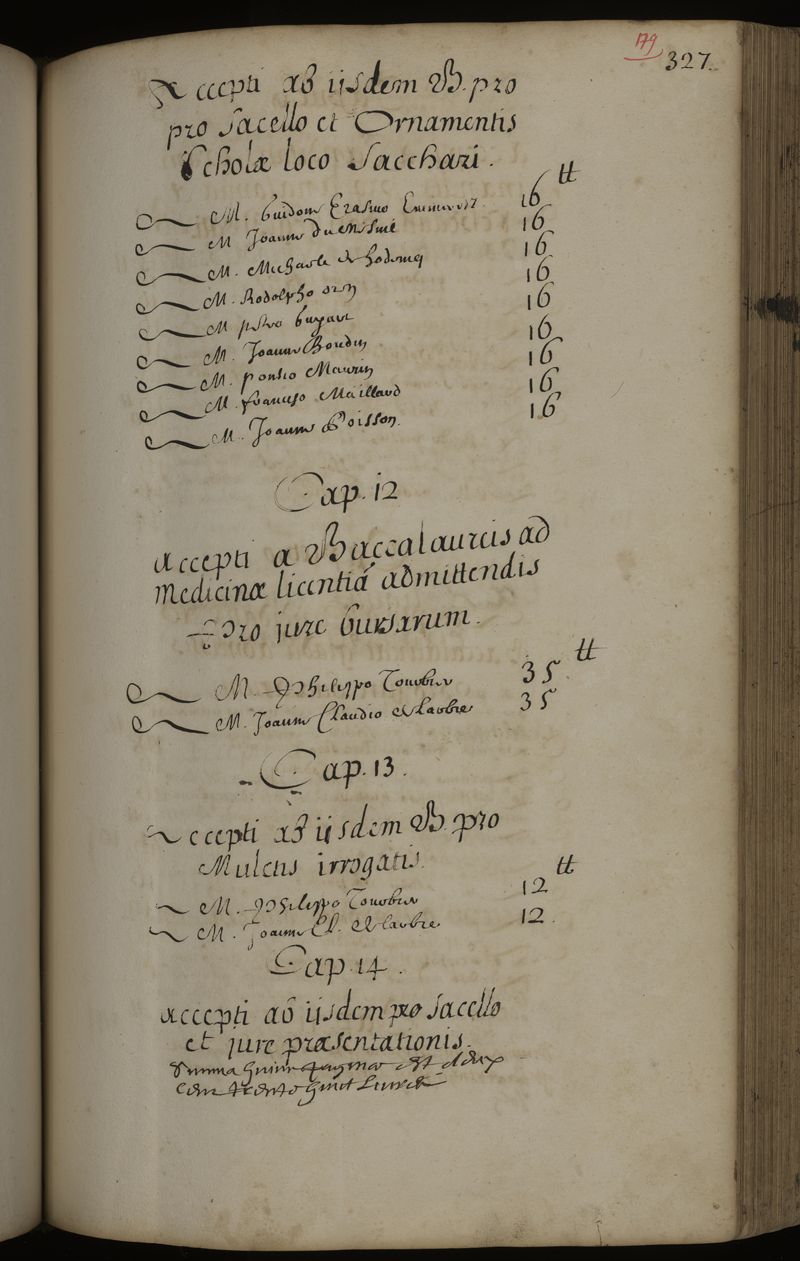 179
327
Accepti ab iisdem B. pro
pro Sacello et Ornamentis
Scholæ loco Sacchari.
tt
M. Guidone Erasmo 16
M Joanne 16
M. Michaele de 16
M. Rodolpho 16
M petro 16
M. Joanne Boudin 16
M. pontio Maurin 16
M. francisco Maillard 16
M. Joanne Poisson. 16
Cap. 12
accepti a Baccalaureis ad
Medicinæ licentiā admittendis
Pro jure bursarum.
tt
M. Philippo 35
M. Joanne Claudio de 35
Cap. 13.
accepti ab iisdem B. pro
Mulctis irrogatis.
tt
M. Philippo 12
M. Joanne Cl. de 12.
Cap. 14.
accepti ab iisdem pro sacello
et jure præsentationis.
Summa huius paginae est